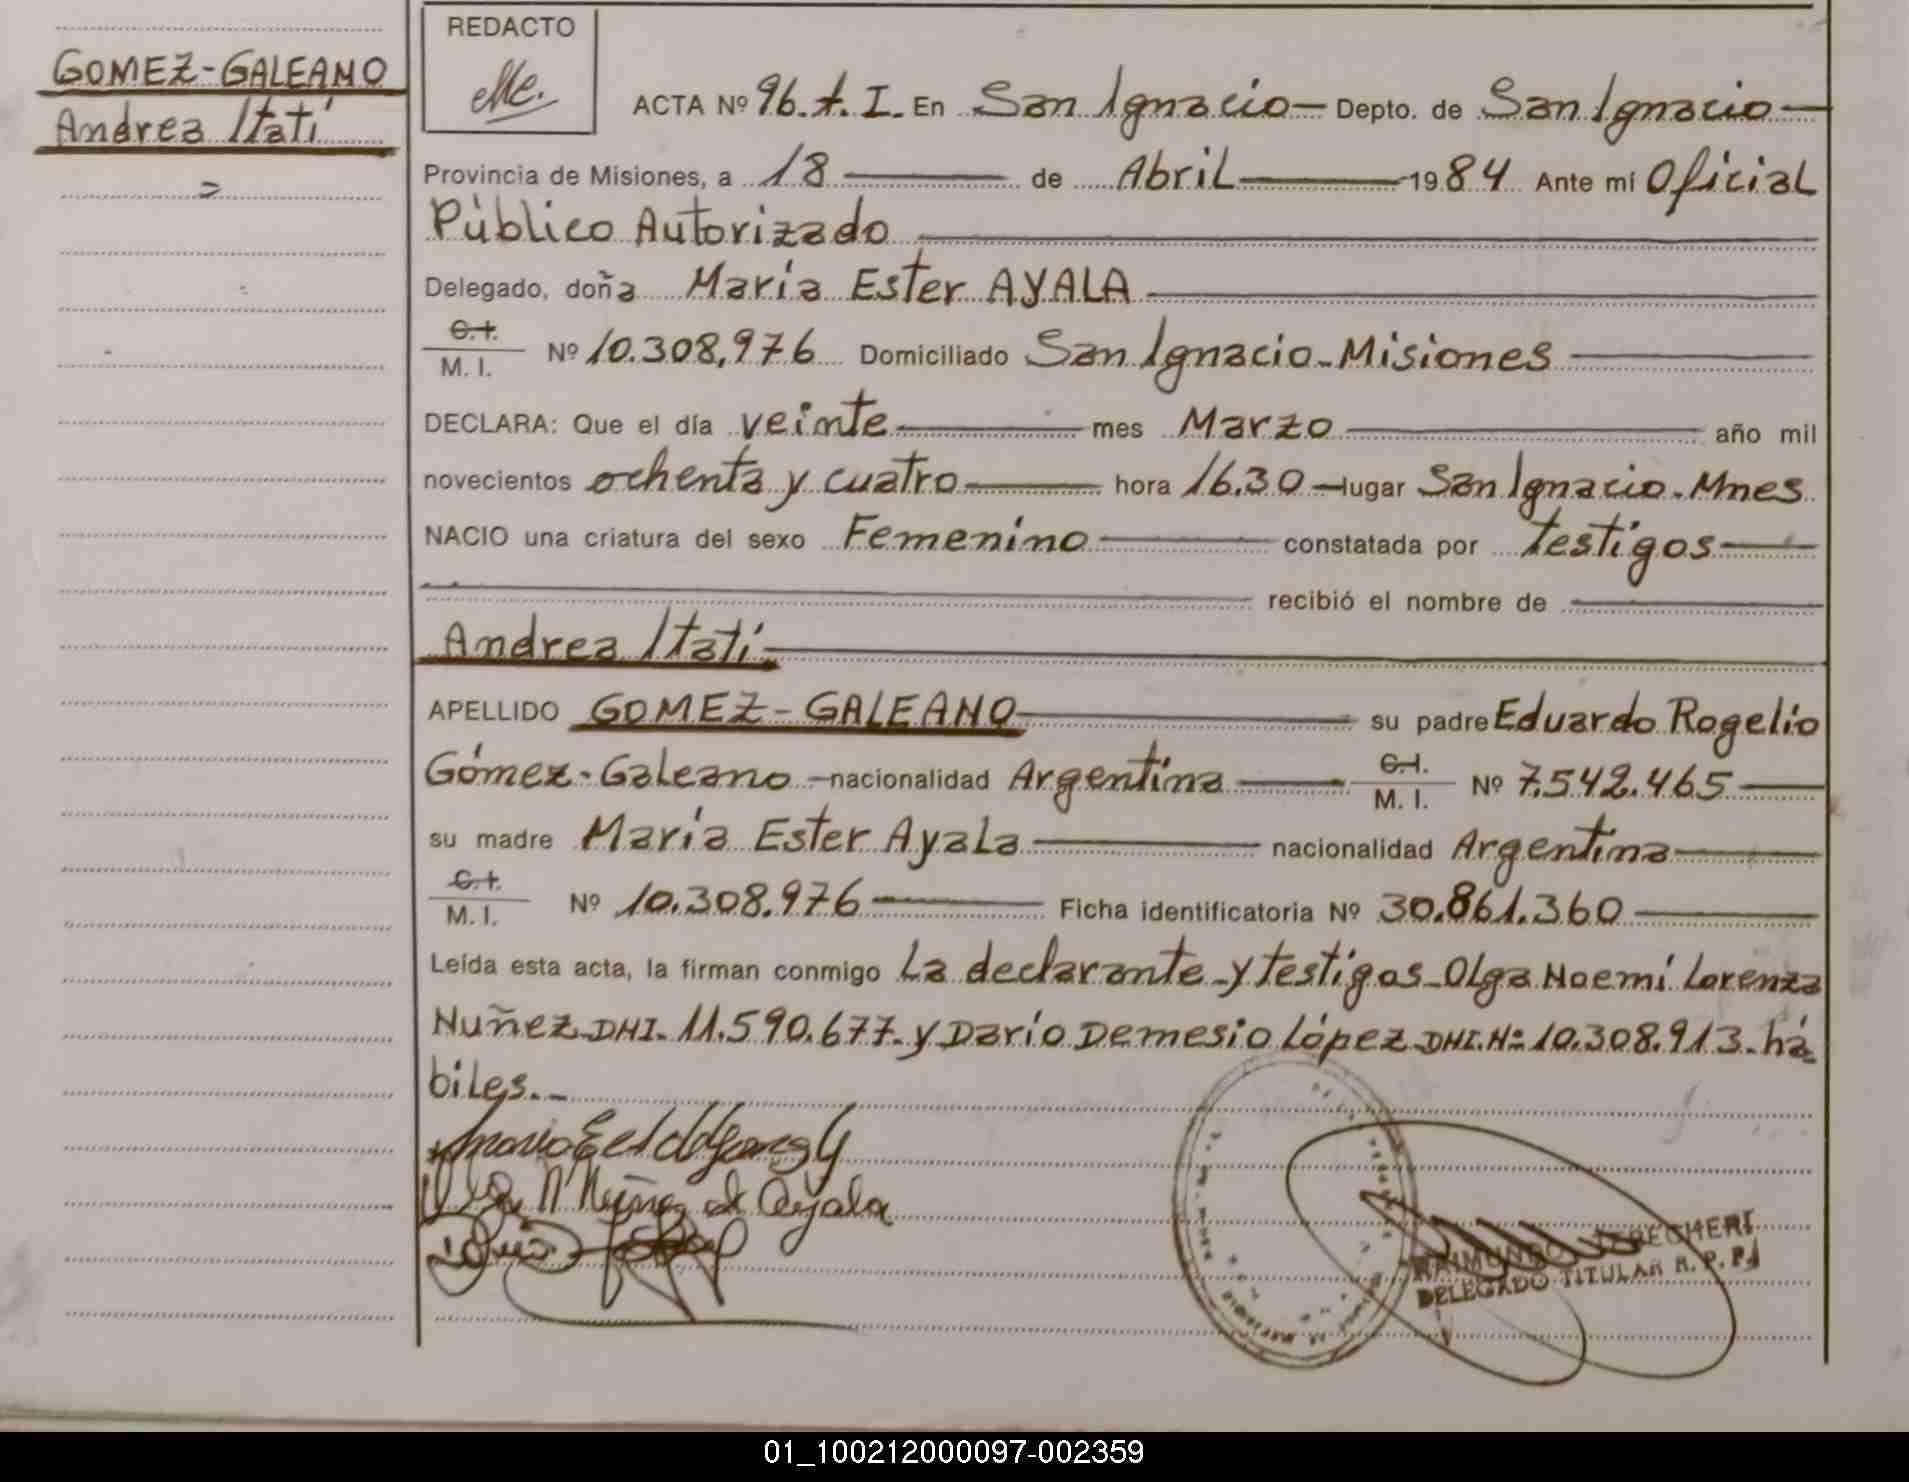 GOMEZ-GALEANO
Andrea Itatí
REDACTO
ACTA Nº 96.t.I. En San Ignacio Depto. de San Ignacio
Provincia de Misiones, a 18 de Abril 1984 Ante mí Oficial
Público Autorizado
Delegado, doña María Ester AYALA
C.I.
M. I. Nº 10.308,976 Domiciliado San Ignacio-Misiones
DECLARA: Que el día veinte mes Marzo año mil
novecientos ochenta y cuatro hora 16.30 lugar San Ignacio. Mnes
NACIO una criatura del sexo Femenino constatada por testigos
recibió el nombre de
Andrea Itatí
APELLIDO GOMEZ-GALEANO su padre Eduardo Rogelio
Gómez-Galeano nacionalidad Argentina C.I. M. I. Nº 7.542.465
su madre María Ester Ayala nacionalidad Argentina
C.I.
M. I. Nº 10.308.976 Ficha identificatoria Nº 30.861.360
Leída esta acta, la firman conmigo La declarante y testigos-Olga Noemí Lorenza
Nuñez DNI. 11.590.677. y Darío Demesio López DNI.Nº 10.308.913. há
biles.-
Nuñez de Ayala
RAIMUNDO
DELEGADO TITULAR R. P. P.
01_100212000097-002359